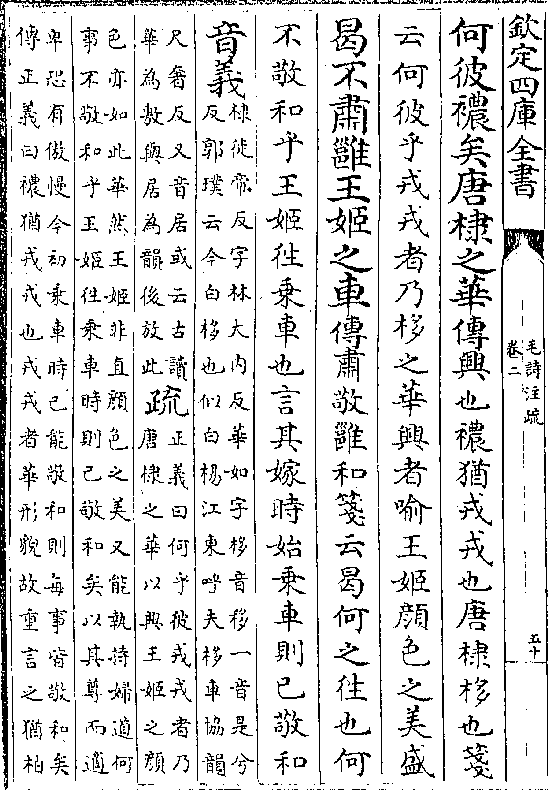 欽定四庫全書
毛詩注疏
卷二
五十
何彼襛矣唐棣之華傳興也襛猶戎戎也唐棣栘也箋
云何彼乎戎戎者乃栘之華興者喻王姬顔色之美盛
曷不肅雝王姬之車傳肅敬雝和箋云曷何之往也何
不敬和乎王姬往乗車也言其嫁時始乗車則已敬和
音義
棣徒帝反字林大内反華如字栘音移一音是兮
反郭璞云今白栘也似白楊江東呼夫栘車協韻
尺奢反又音居或云古讀
華為敷與居為韻後放此
疏
正義曰何乎彼戎戎者乃
唐棣之華以興王姬之顔
色亦如此華然王姬非直顔色之美又能執持婦道何
事不敬和乎王姬往乗車時則已敬和矣以其尊而適
卑恐有傲慢今初乗車時已能敬和則每事皆敬和矣
傳正義曰襛猶戎戎也戎戎者華形貌故重言之猶柏